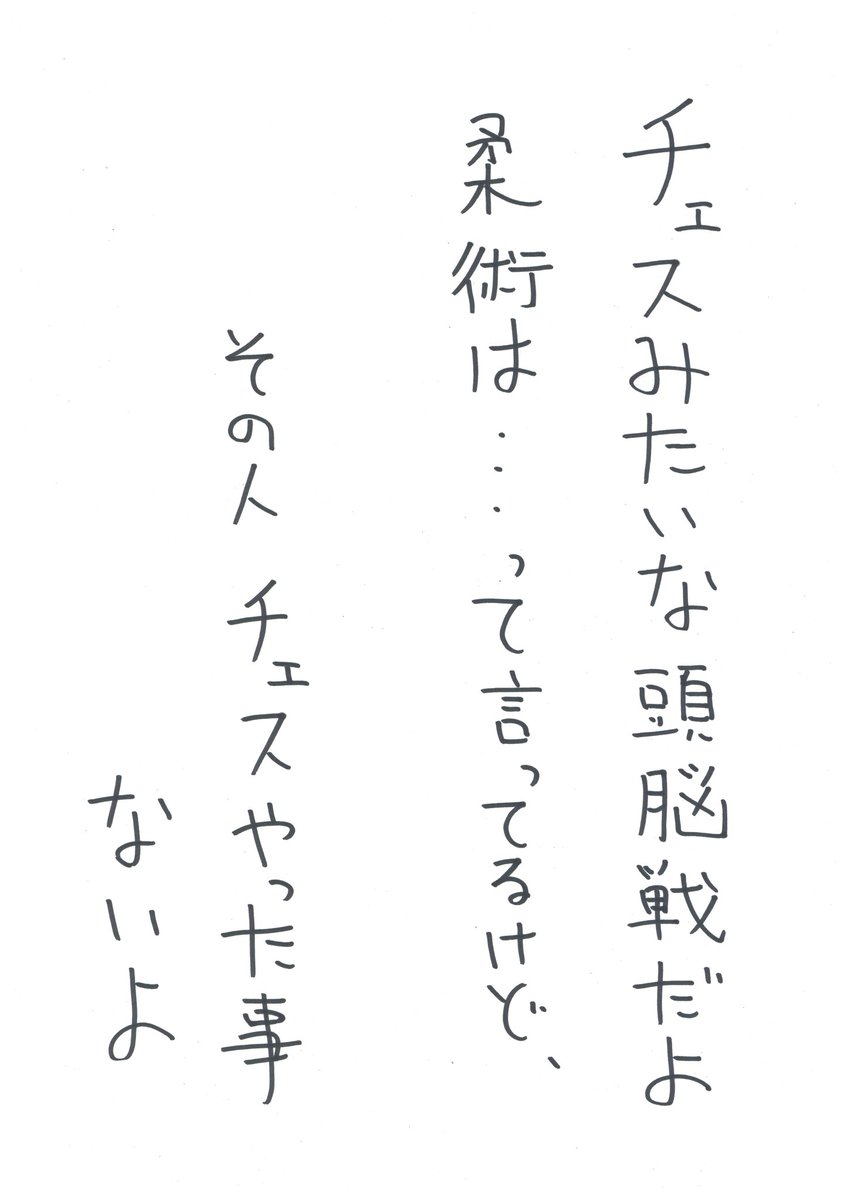 チェスみたいな頭脳戦だよ
柔術は・・・って言ってるけど、
その人 チェスやった事
ないよ